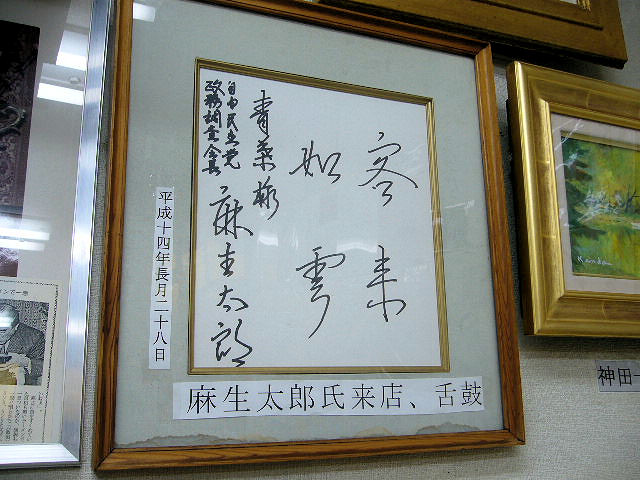 客来
如雲
青葉衫
自由民主党
政務調査会長
麻生太郎
平成十四年長月二十八日
麻生太郎氏来店、舌鼓
神田一